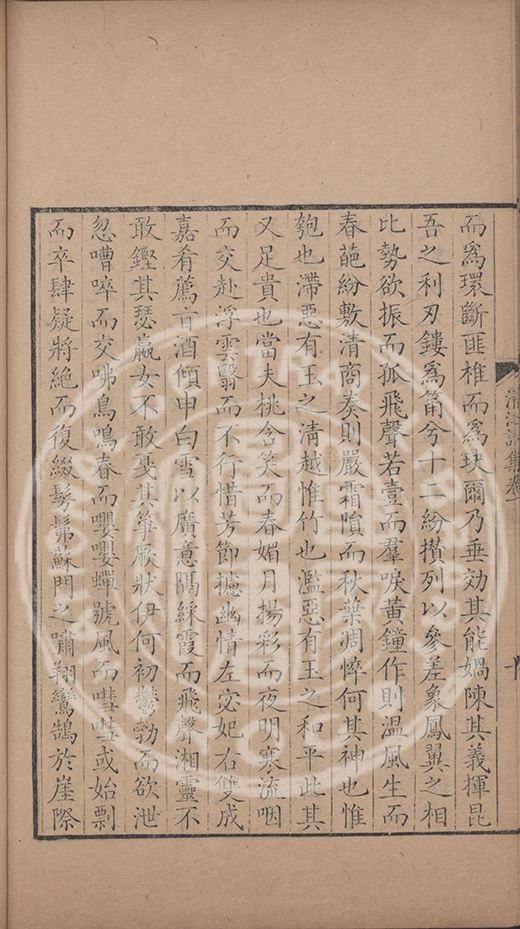 而為環斷匪椎而為玦爾乃垂効其能媧陳其義揮昆
吾之利刃鏤為筩兮十二紛攢列以參差象鳳翼之相
比勢欲振而孤飛聲若壹而羣唳黃鐘作則温風生而
春葩紛敷清商奏則嚴霜隕而秋葉凋悴何其神也惟
匏也滯惡有玉之清越惟竹也濫惡有玉之和平此其
又足貴也當夫桃含笑而春媚月揚彩而夜明寒流咽
而交赴浮雲翳而不行惜芳節攄幽情左宓妃右雙成
嘉肴薦旨酒傾申白雪以廣意隔綵霞而飛聲湘靈不
敢鏗其瑟嬴女不敢戞其筝厥狀伊何初鬱勃而欲泄
忽嘈啐而交咈鳥鳴春而嚶嚶蟬號風而嘒嘒或始剽
而卒肆疑將絶而復綴髣髴蘇門之嘯翔鸞鵠於崖際